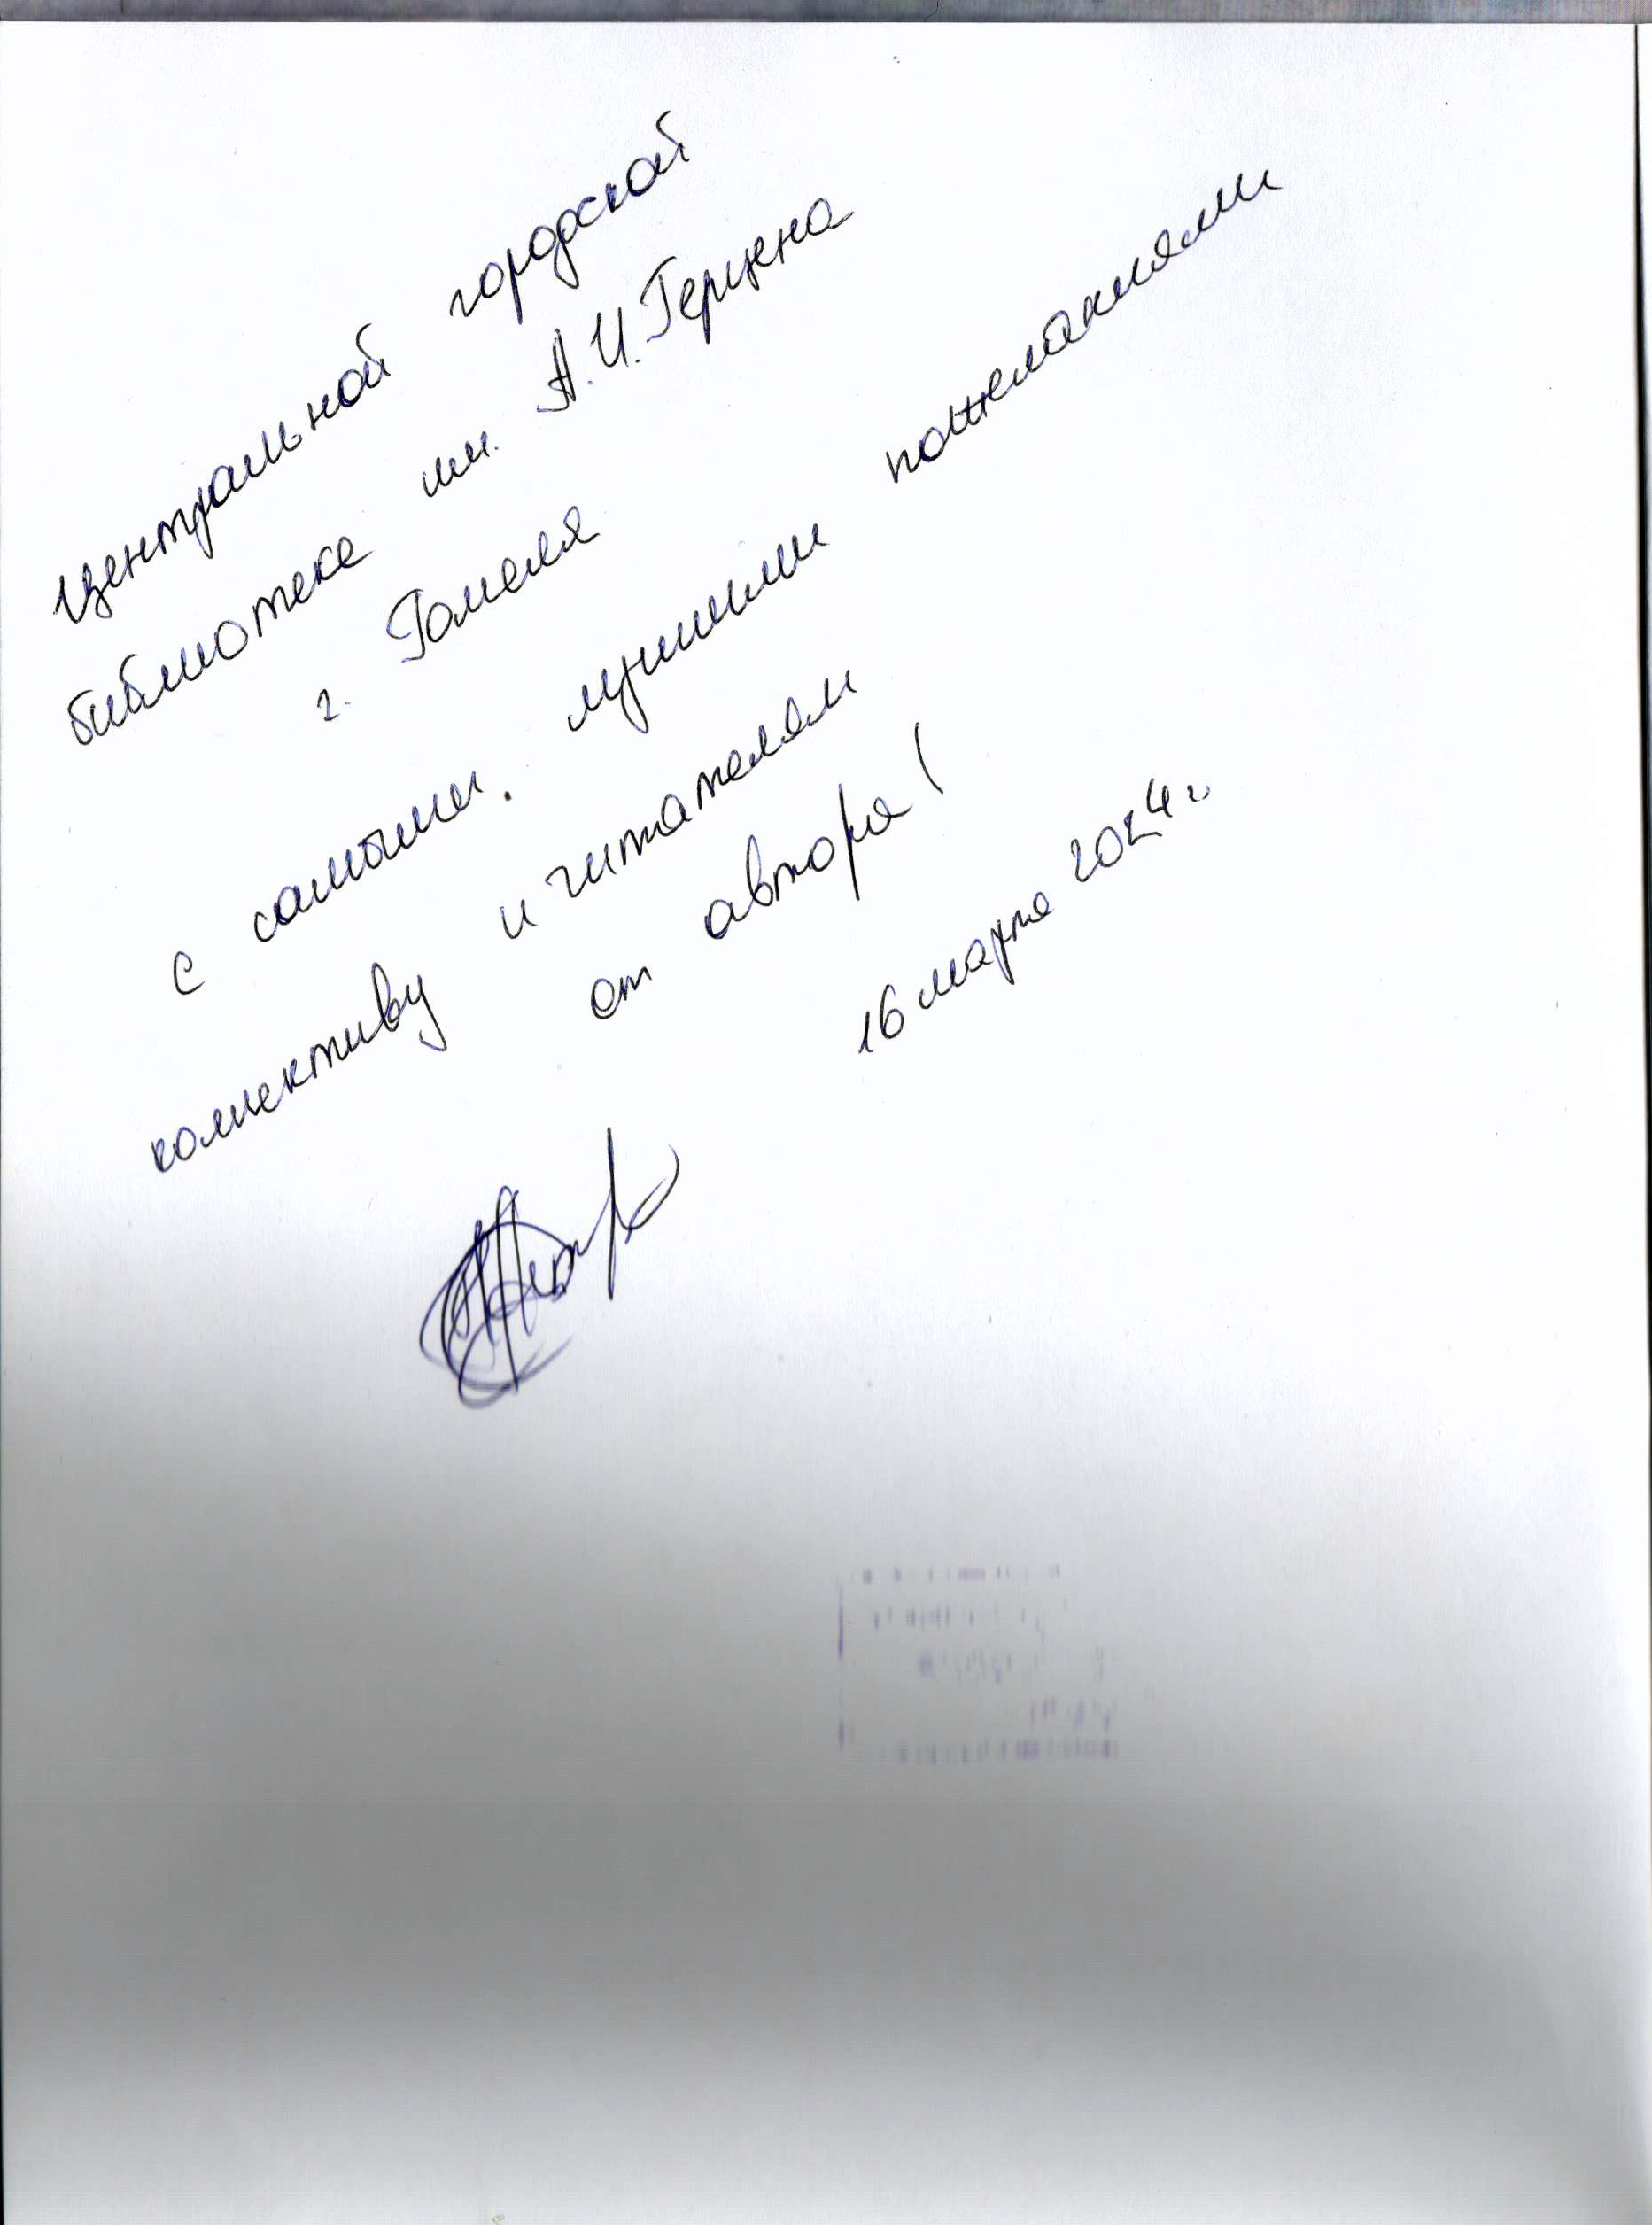 Центральной городской
библиотеке им. А.И. Герцена
г. Гомеля
с самыми лучшими пожеланиями
коллективу и читателям
от автора!
16 марта 2024 г